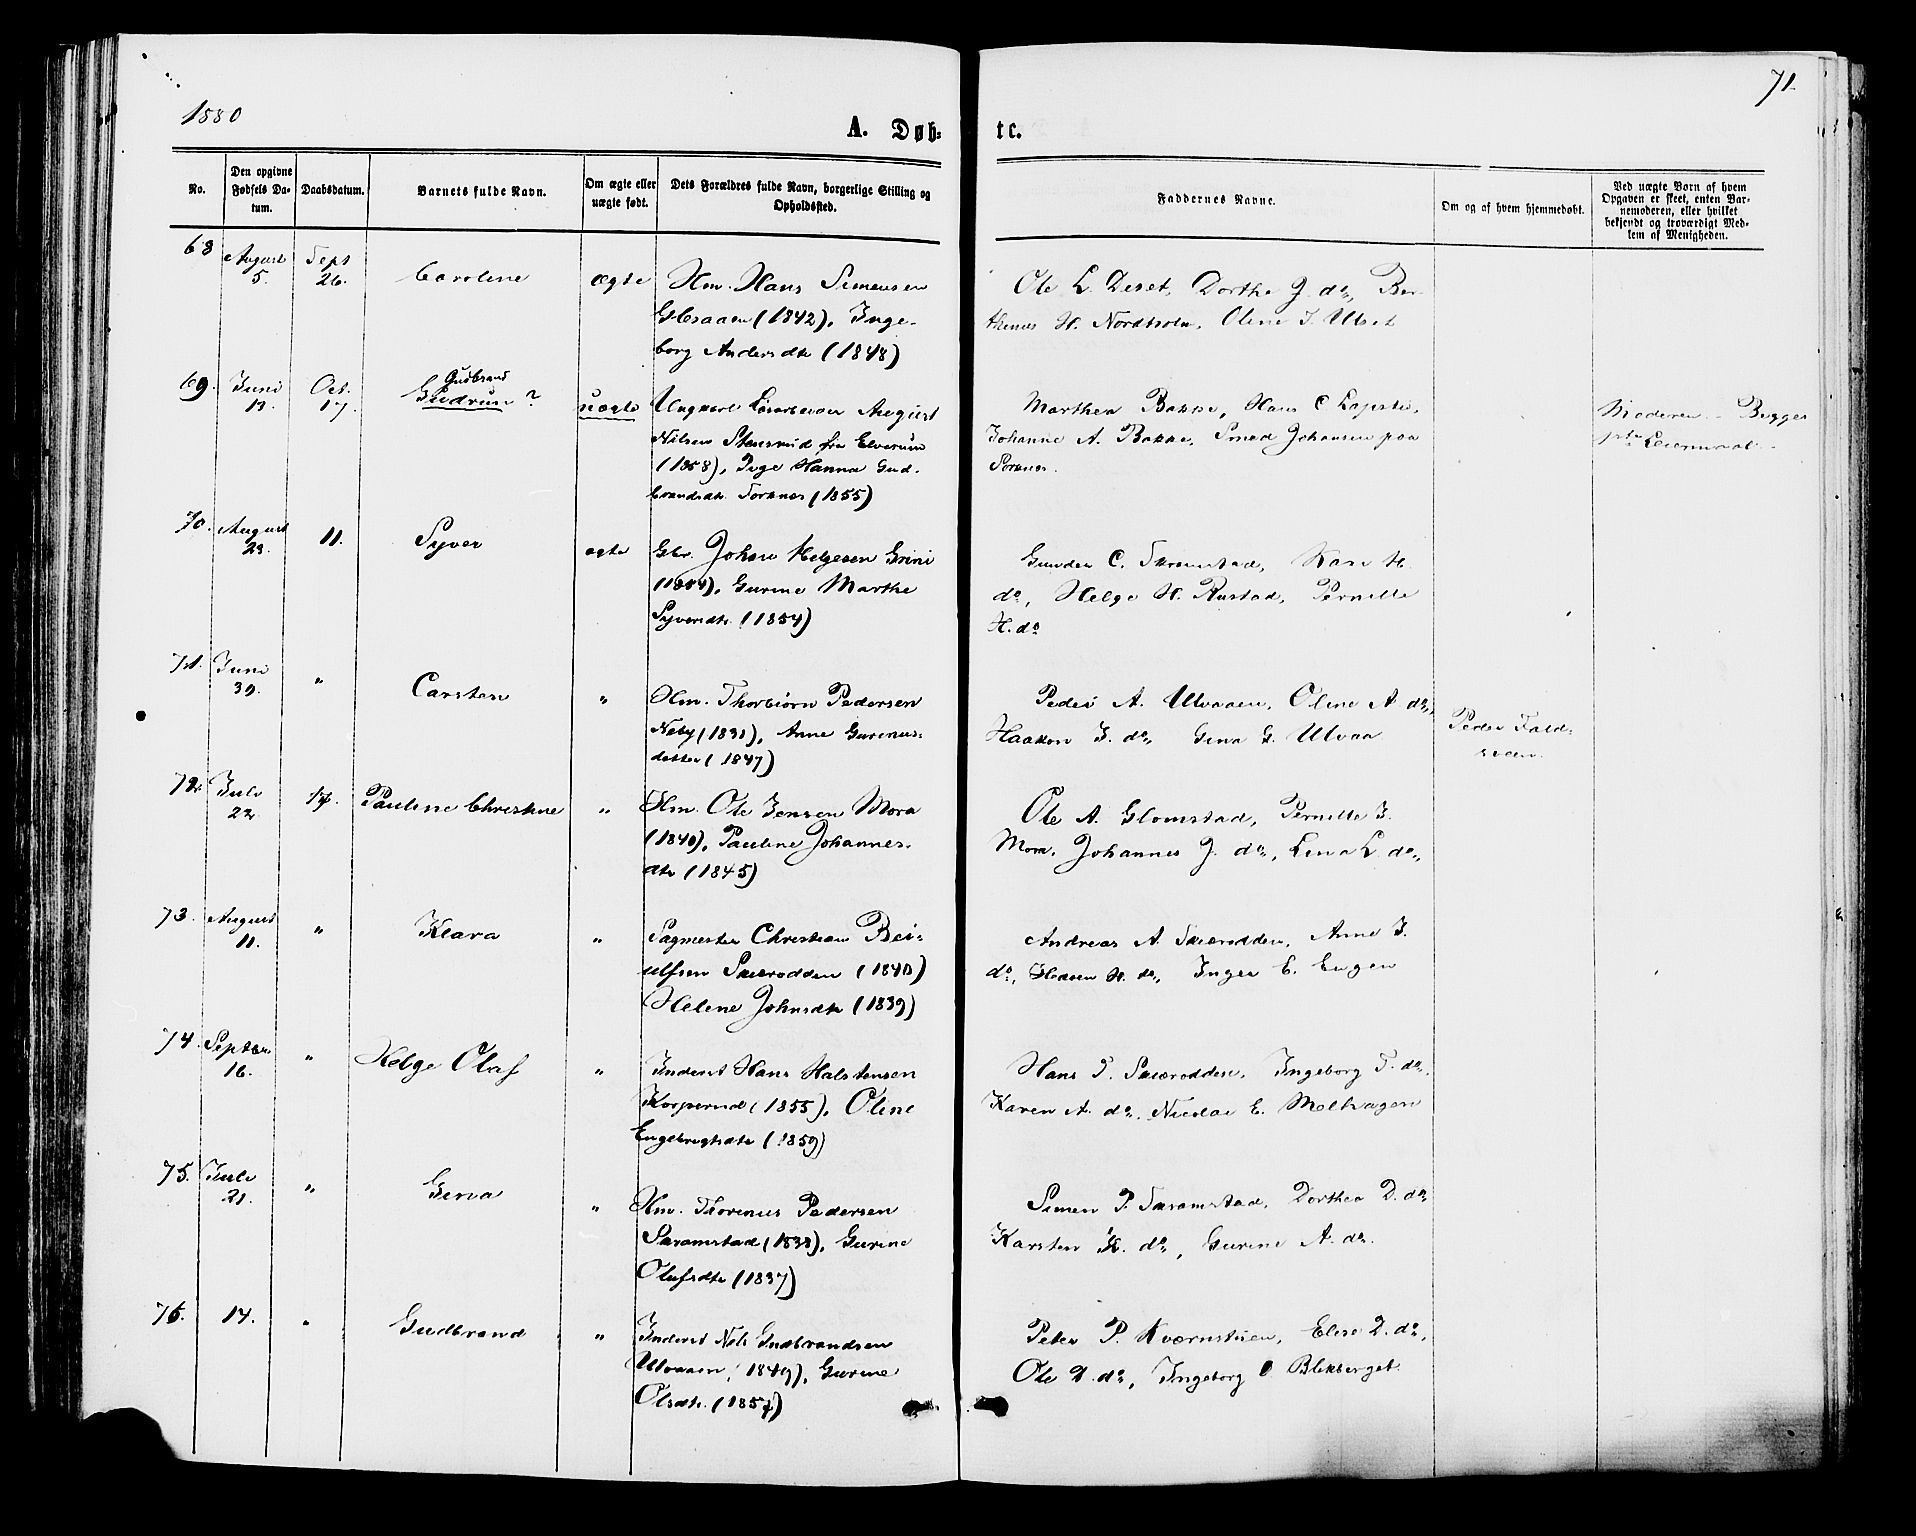 1880
71
A. Døb-
te.
No.
Den opgivne Fødsels Da-tum.
Daabsdatum.
Barnets fulde Navn.
Om ægte eller uægte født.
Dets Forældres fulde Navn, borgerlige Stilling og Opholdssted.
Faddernes Navne.
Om og af hvem hjemmedøbt.
Ved uægte Børn af hvem Opgaven er skeet, enten Bar-nemoderen, eller hvilket bekjendt og troværdigt Med-lem af Menigheden.
68
August 5.
Sept 26.
Caroline
ægte
Hm. Hans Simensen
(1842), Inge-
borg Andersdtr (1848)
Ole L. Deset, Dorthe J. do,
H. Nordholm, Oline J.
69.
Juni 13.
Oct. 17.
Gudbrand
Gudrun ?
uægte
Ungkarl August
Nilsen Stensrud fra Elverum
(1858), Pige Hanna Gud-
brandsdtr. (1855)
Marthea Bakke, Hans C
Johanne A. Bakke, Smed Johansen paa
Moderen - Begges
Leiermaal
70.
August 29.
11.
Syver
ægte
Gbr. Johan Helgesen Grini
Gurine Marthe
Syversdtr. (1854)
Gunder C. Kari H.
do, Helge H. Rustad, Pernille
H. do
71.
Juni 30.
"
Carsten
"
Hm. Thorbiørn Pedersen
Neby (1831), Anne Gurinus-
datter (1847)
Peder A. Ulvaaen, Oline A do,
Haakon J. do, Gina G. Ulvaa
Peder
72.
Juli 22.
17.
Pauline Christine
"
Hm. Ole Jensen Mora
(1840), Pauline Johannes-
dtr (1845)
Ole A. Glomstad, Pernille J.
Mora, Johannes J. do, Lina L. do,
73.
August 11.
"
Klara
"
Sagmester Christian
Skjærodden (1840)
Helene Johnsdtr (1839)
Andreas A. Skjærodden, Anne J.
do, H. do, Inger E. Engen
74.
Septbr 16.
"
Helge Olaf
"
Inderst Hans Halstensen
(1855), Oline
Engebregtsdtr (1859)
Hans T. Skjærodden, Ingeborg T. do.
Karen A. do, Nicolai E.
75.
Juli 21.
"
Gina
"
Hm. Thorinus Pedersen
Skramstad (1838), Gurine
Olufsdtr (1837)
Simen P. Skramstad, Dorthea D. do,
Karsten K. do, Gurine A. do.
76.
14.
"
Gudbrand
"
Inderst Nils Gudbrandsen
Ulvaaen (1849), Gurine
Olsdtr. (1857)
Peter P. Kværnstuen, Elise D. do,
Ole D. do, Ingeborg O Blekberget